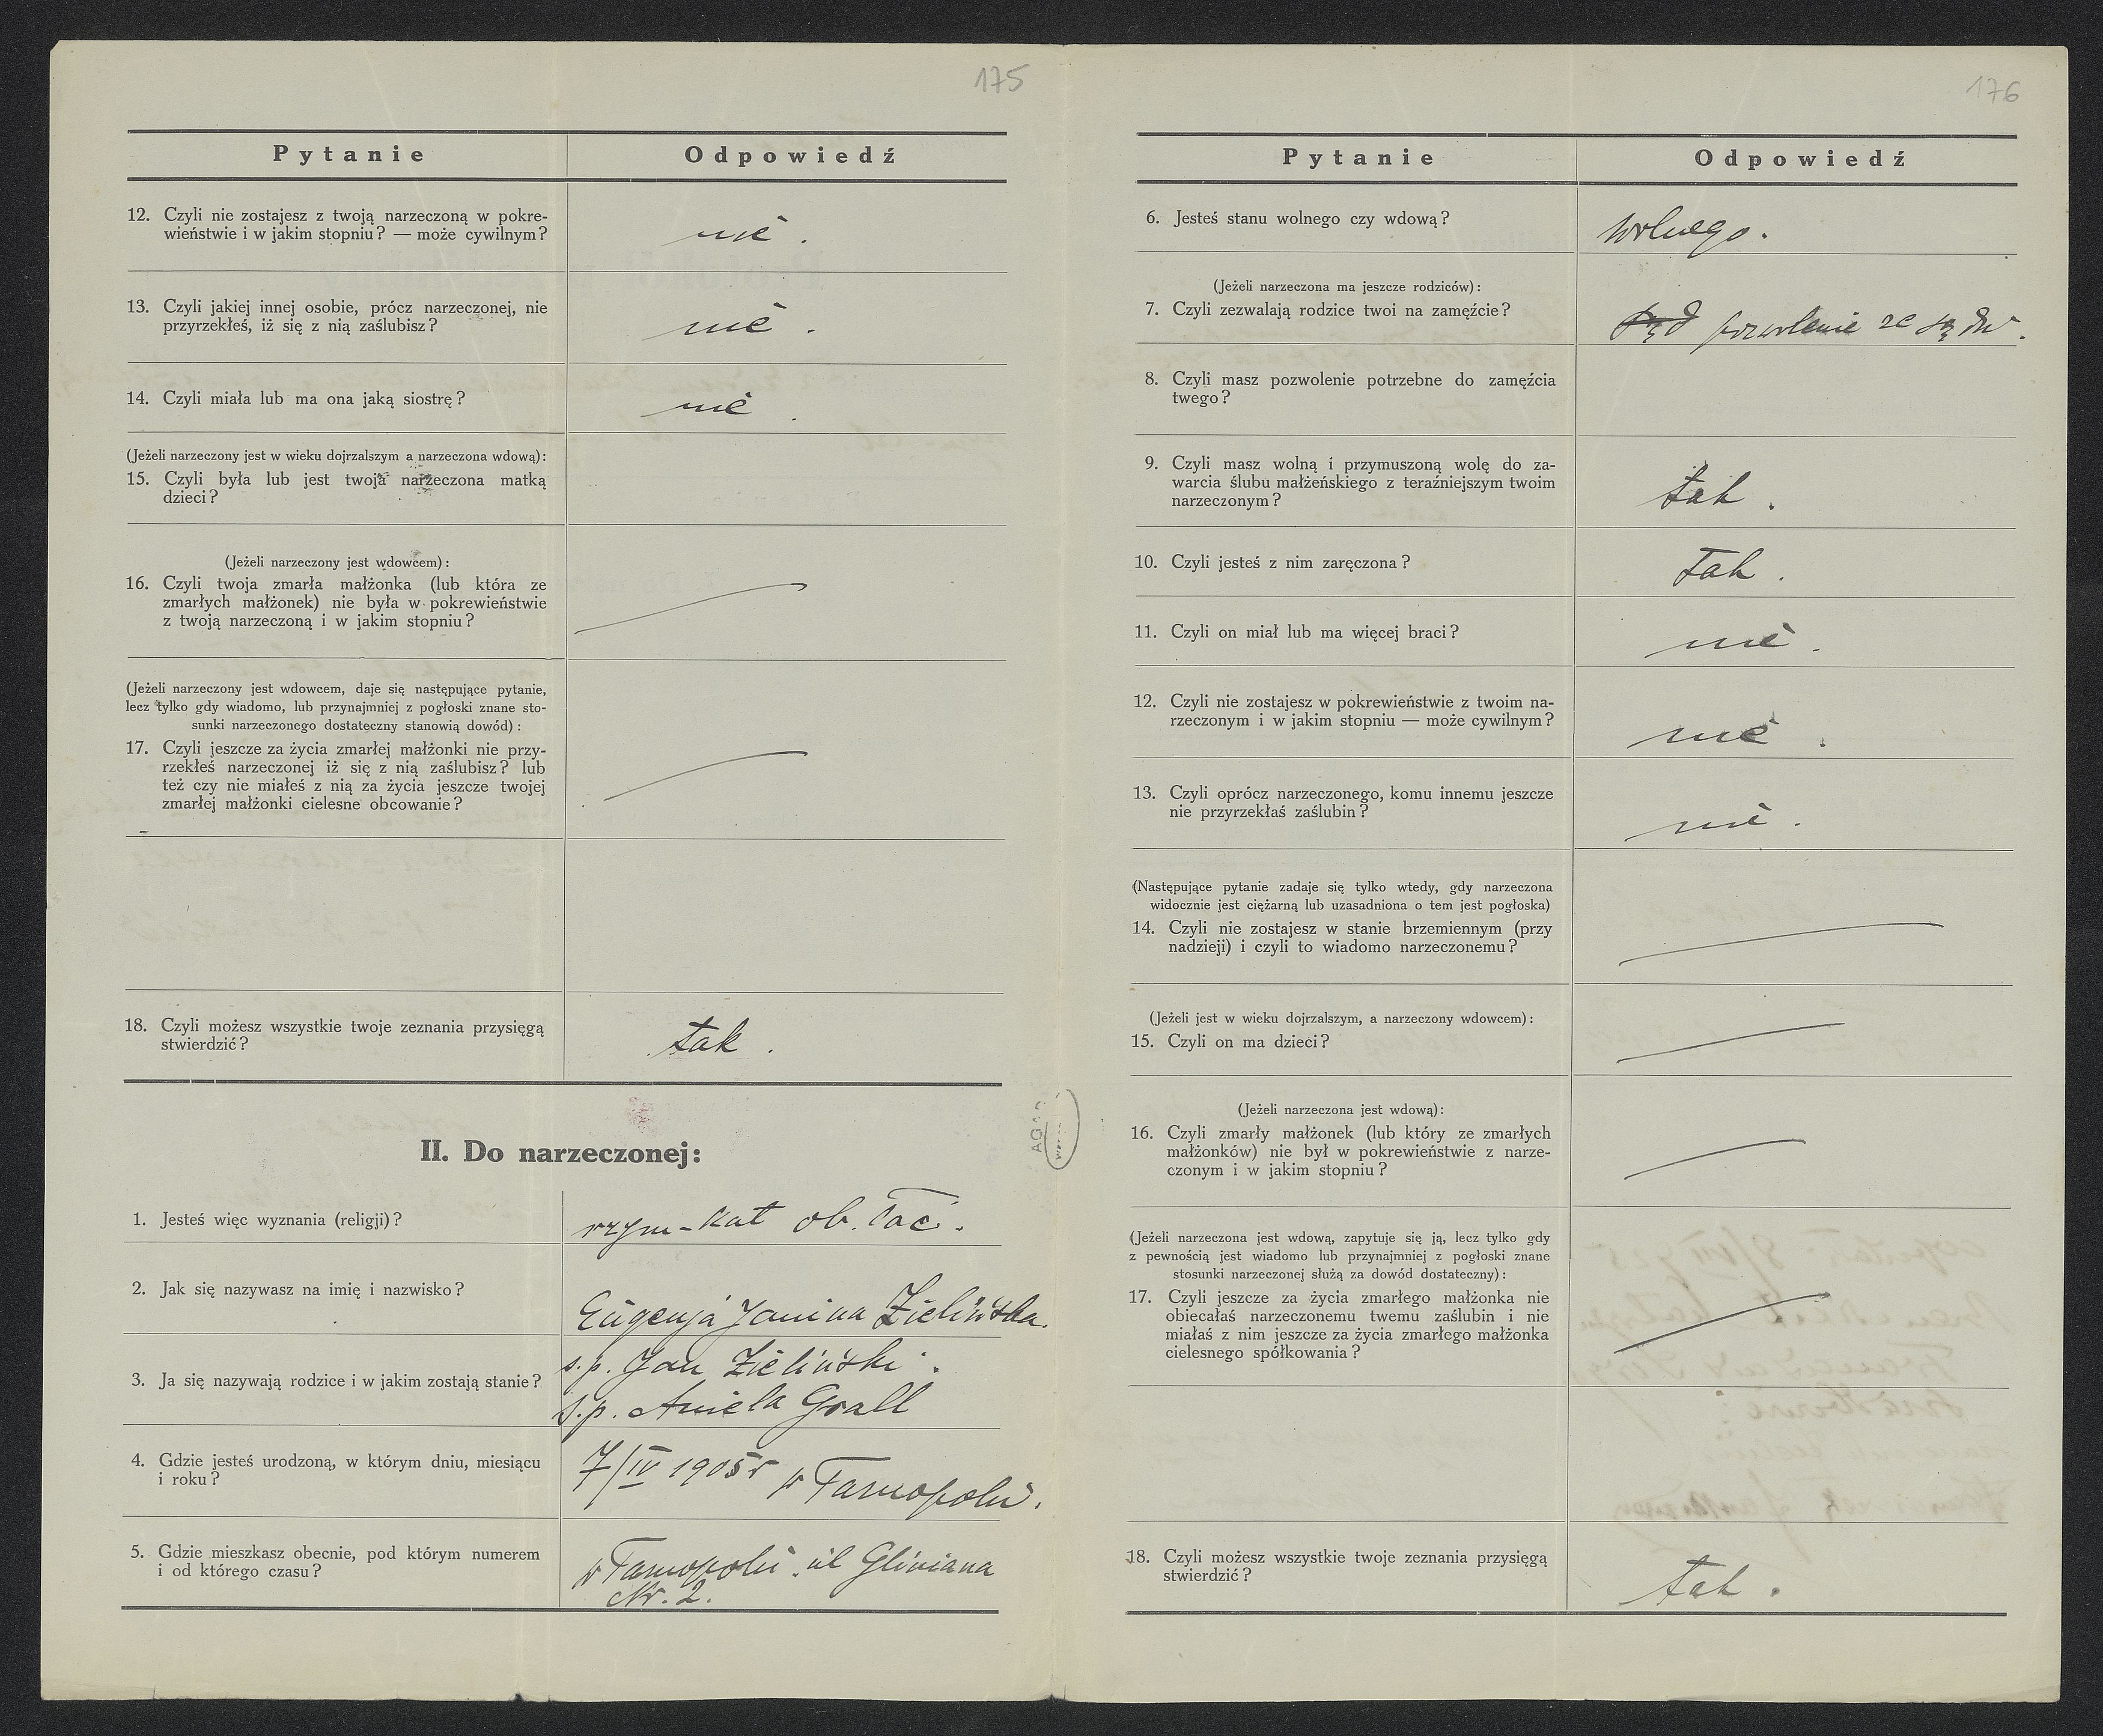 175
Pytanie
Odpowiedź
12. Czyli nie zostajesz z twoją narzeczoną w pokre-
wieństwie i w jakim stopniu? — może cywilnym?
nie.
13. Czyli jakiej innej osobie, prócz narzeczonej, nie
przyrzekłeś, iż się z nią zaślubisz?
nie.
14. Czyli miała lub ma ona jaką siostrę?
nie.
(Jeżeli narzeczony jest w wieku dojrzalszym a narzeczona wdową):
15. Czyli była lub jest twoja narzeczona matką
dzieci?
(Jeżeli narzeczony jest wdowcem):
16. Czyli twoja zmarła małżonka (lub która ze
zmarłych małżonek) nie była w pokrewieństwie
z twoją narzeczoną i w jakim stopniu?
(Jeżeli narzeczony jest wdowcem, daje się następujące pytanie,
lecz tylko gdy wiadomo, lub przynajmniej z pogłoski znane sto-
sunki narzeczonego dostateczny stanowią dowód):
17. Czyli jeszcze za życia zmarłej małżonki nie przy-
rzekłeś narzeczonej iż się z nią zaślubisz? lub
też czy nie miałeś z nią za życia jeszcze twojej
zmarłej małżonki cielesne obcowanie?
18. Czyli możesz wszystkie twoje zeznania przysięgą
stwierdzić?
tak.
II. Do narzeczonej:
1. Jesteś więc wyznania (religji)?
rzym-kat ob. łac.
2. Jak się nazywasz na imię i nazwisko?
Eugenja Janina Zielińska.
3. Ja się nazywają rodzice i w jakim zostają stanie?
s.p. Jan Zieliński.
s.p. Aniela Grall
4. Gdzie jesteś urodzoną, w którym dniu, miesiącu
i roku?
7/IV 1905 r w Tarnopolu.
5. Gdzie mieszkasz obecnie, pod którym numerem
i od którego czasu?
w Tarnopolu ul Gliniana
Nr. 2.
AGAD
176
Pytanie
Odpowiedź
6. Jesteś stanu wolnego czy wdową?
wolnego.
(Jeżeli narzeczona ma jeszcze rodziców):
7. Czyli zezwalają rodzice twoi na zamęźcie?
Sąd pozwolenie ze sądu.
8. Czyli masz pozwolenie potrzebne do zamęźcia
twego?
9. Czyli masz wolną i przymuszoną wolę do za-
warcia ślubu małżeńskiego z teraźniejszym twoim
narzeczonym?
tak.
10. Czyli jesteś z nim zaręczona?
Tak.
11. Czyli on miał lub ma więcej braci?
nie.
12. Czyli nie zostajesz w pokrewieństwie z twoim na-
rzeczonym i w jakim stopniu — może cywilnym?
nie.
13. Czyli oprócz narzeczonego, komu innemu jeszcze
nie przyrzekłaś zaślubin?
nie.
(Następujące pytanie zadaje się tylko wtedy, gdy narzeczona
widocznie jest ciężarną lub uzasadniona o tem jest pogłoska)
14. Czyli nie zostajesz w stanie brzemiennym (przy
nadzieji) i czyli to wiadomo narzeczonemu?
(Jeżeli jest w wieku dojrzalszym, a narzeczony wdowcem):
15. Czyli on ma dzieci?
(Jeżeli narzeczona jest wdową):
16. Czyli zmarły małżonek (lub który ze zmarłych
małżonków) nie był w pokrewieństwie z narze-
czonym i w jakim stopniu?
(Jeżeli narzeczona jest wdową, zapytuje się ją, lecz tylko gdy
z pewnością jest wiadomo lub przynajmniej z pogłoski znane
stosunki narzeczonej służą za dowód dostateczny):
17. Czyli jeszcze za życia zmarłego małżonka nie
obiecałaś narzeczonemu twemu zaślubin i nie
miałaś z nim jeszcze za życia zmarłego małżonka
cielesnego spółkowania?
18. Czyli możesz wszystkie twoje zeznania przysięgą
stwierdzić?
tak.